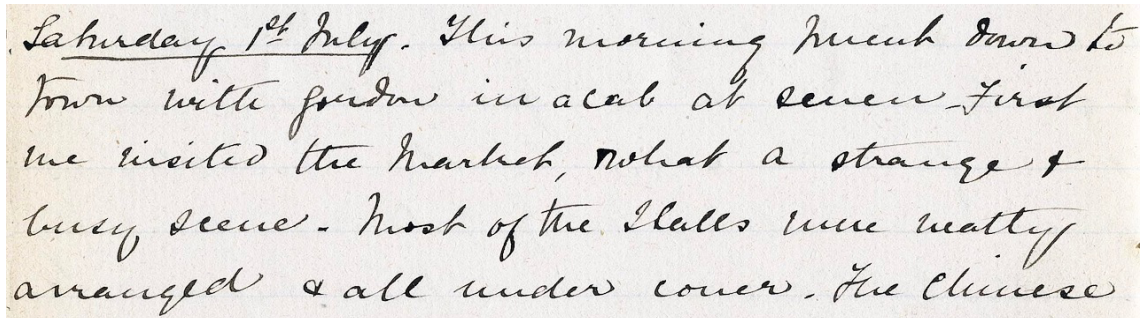 Saturday 1st July. This morning I went down to
town with Gordon in a cab at seven. First
we visited the Market, what a strange &
busy scene. Most of the Stalls were neatly
arranged & all under cover. The Chinese